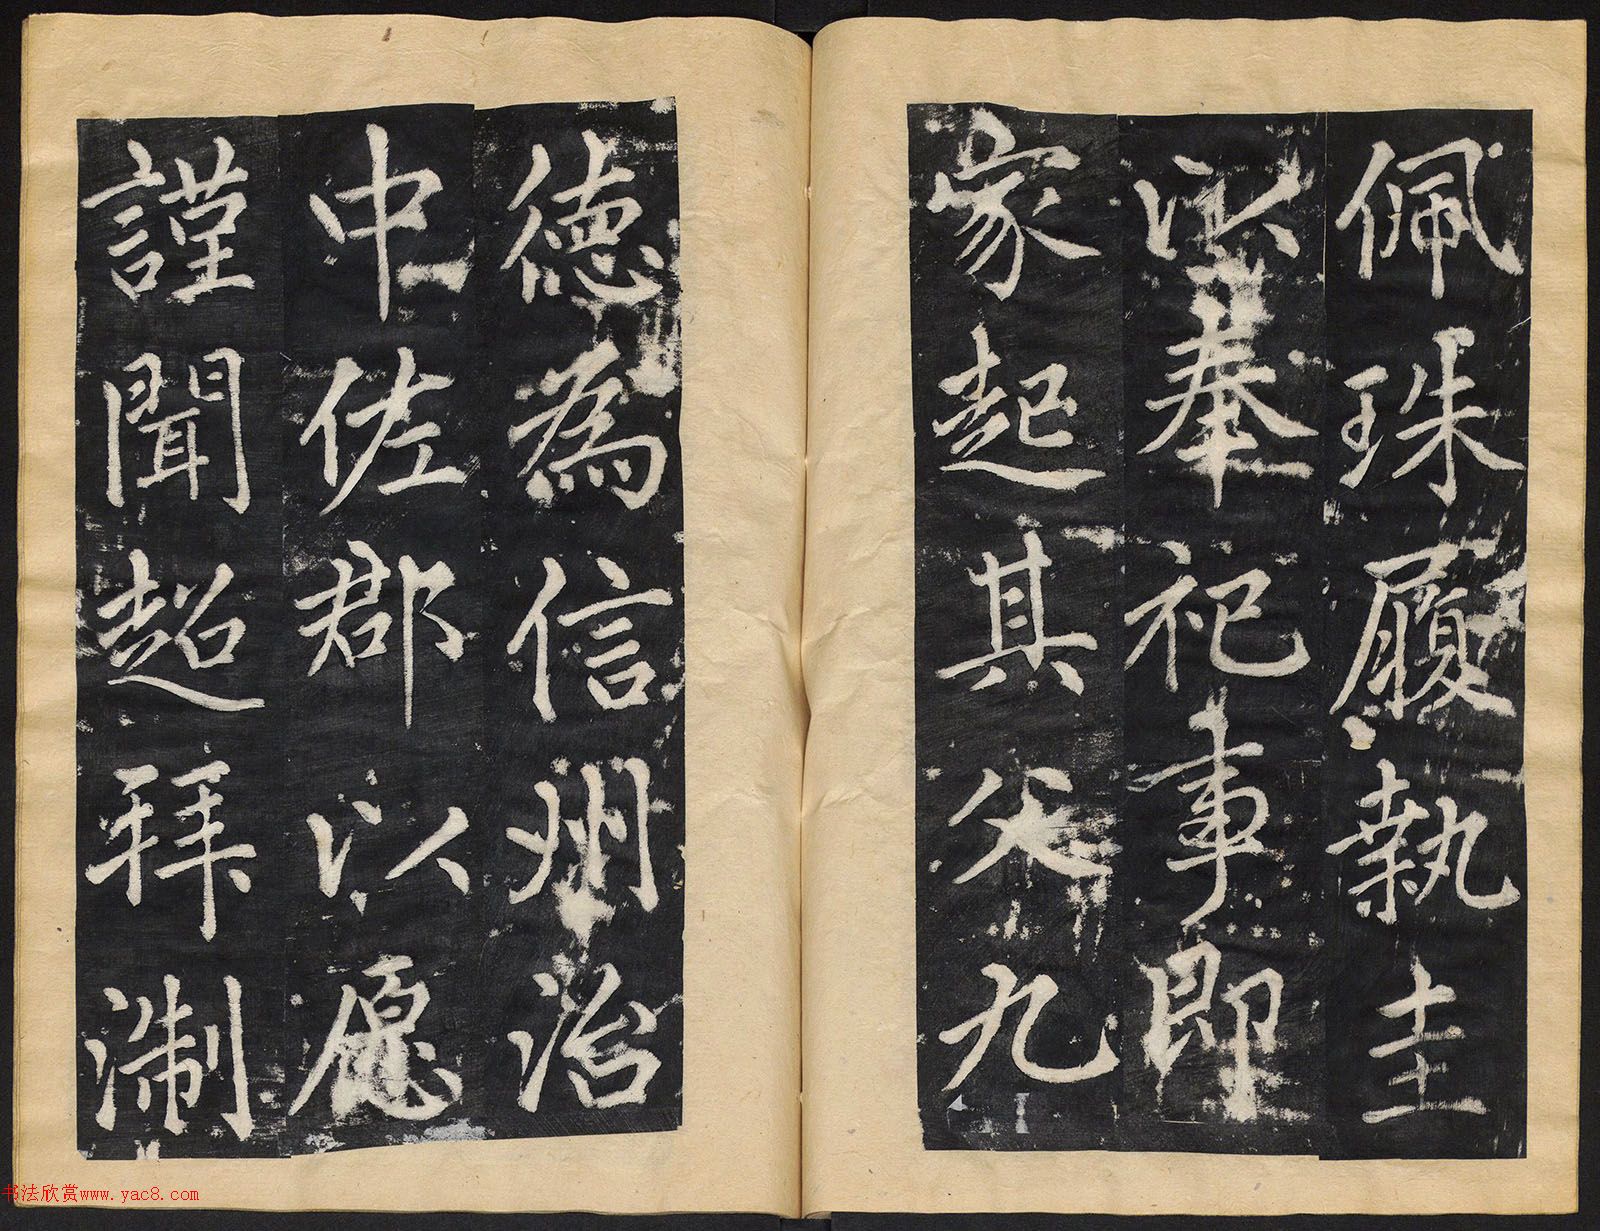 佩珠履執圭
以奉祀事即
家起其父九
德為信州治
中佐郡以愿
謹聞超拜淛
书法欣赏www.yac8.com